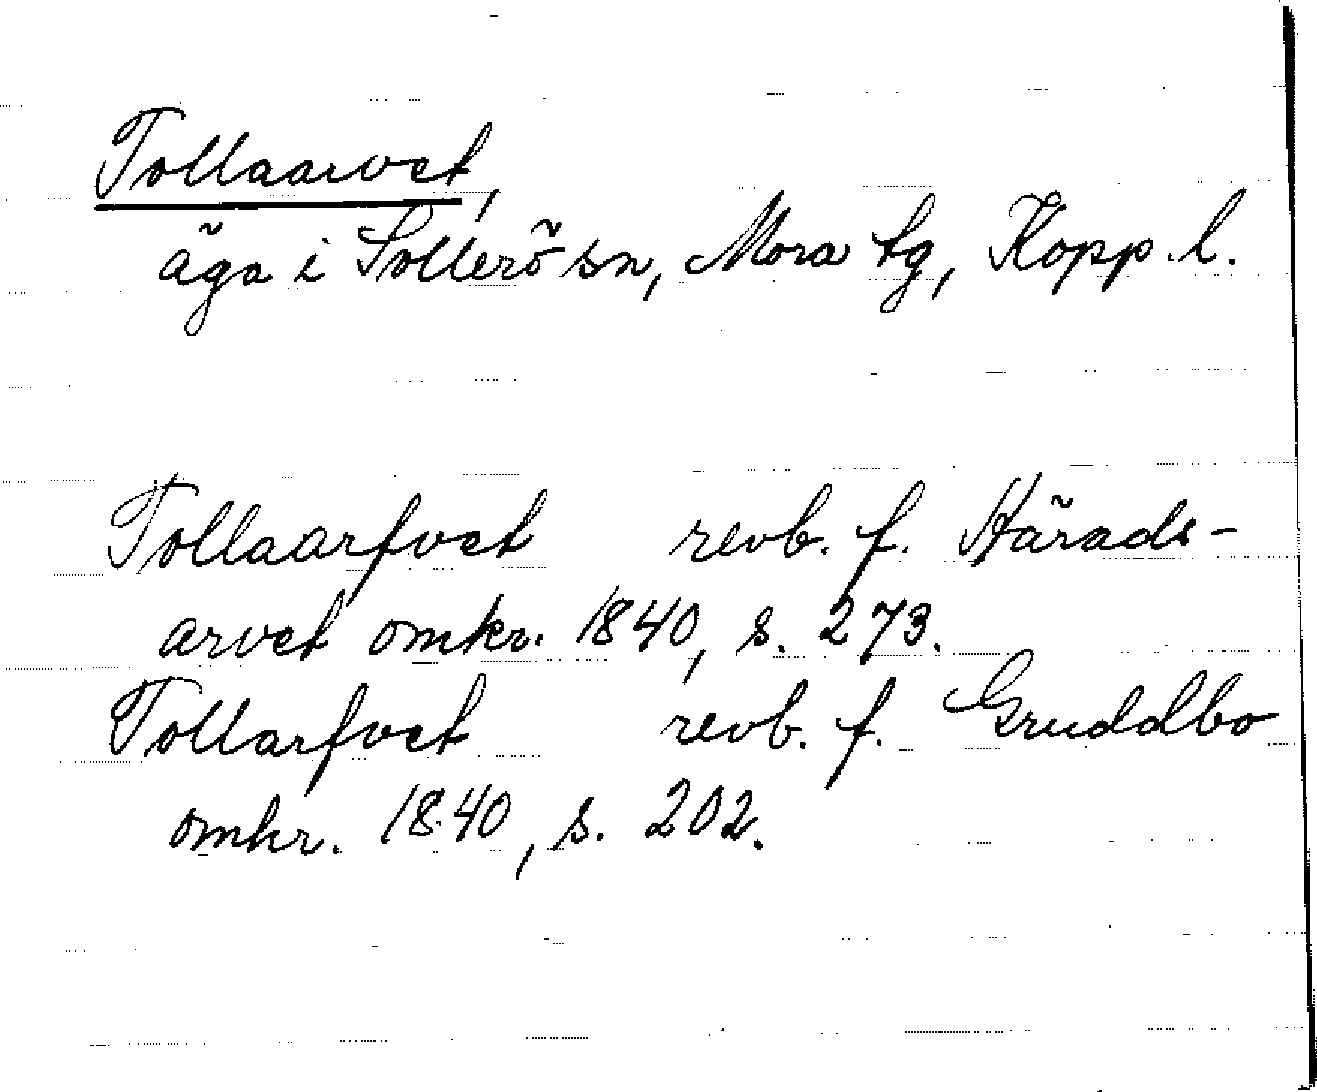 Tollaarvet,
äga i Sollerö sn, Mora tg, Kopp. l.
Tollaarfvet revb. f. Härads-
arvet omkr. 1840, s. 273.
Tollarfvet revb. f. Gruddbo
omkr. 1840, s. 202.